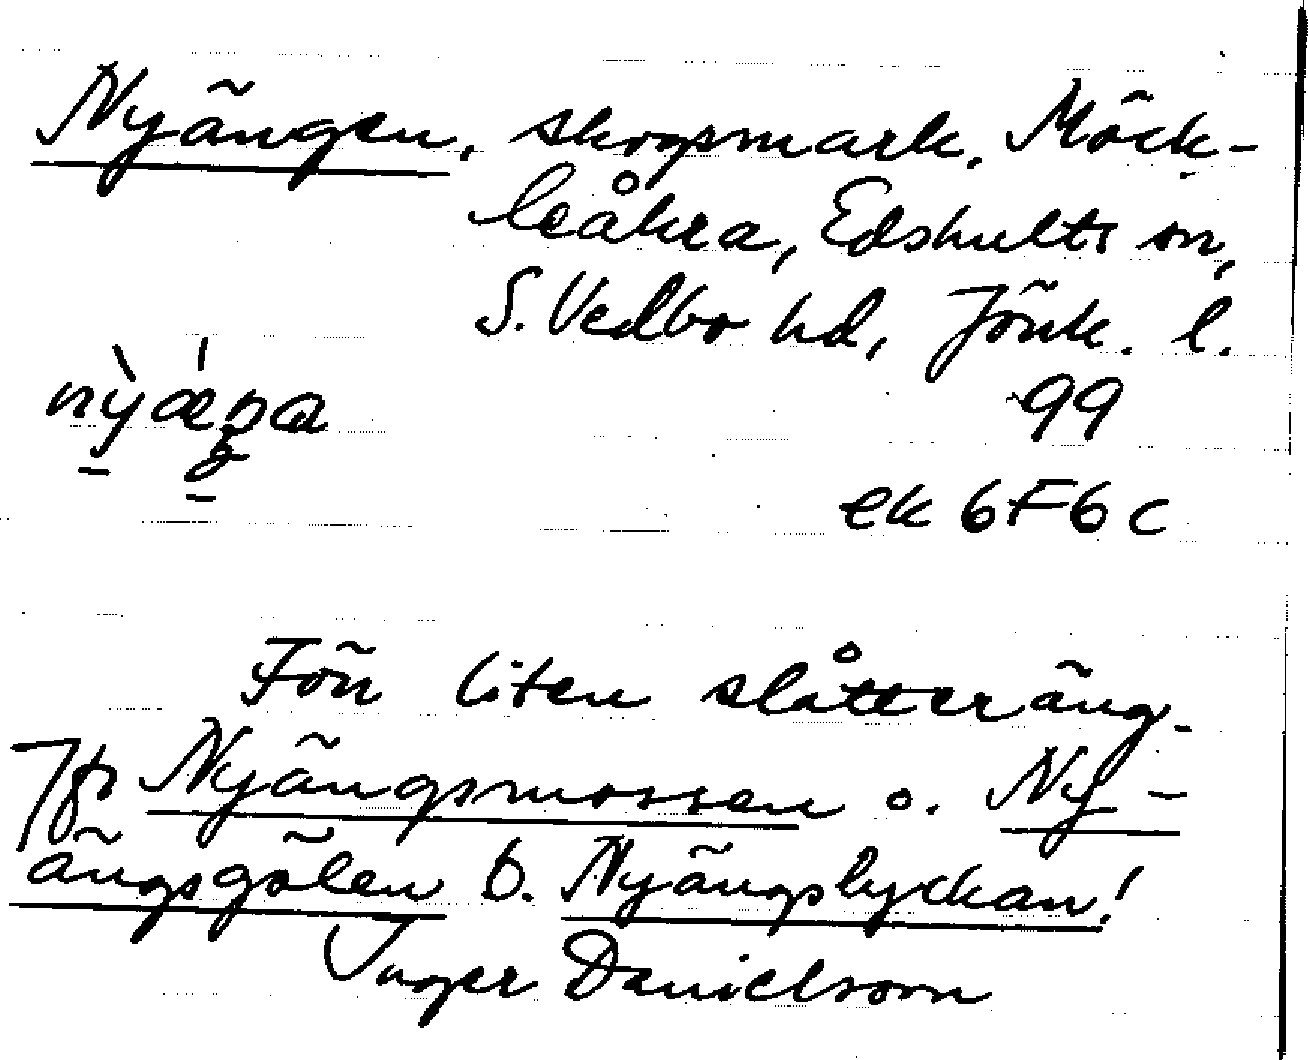 Nyängen, skogsmark, Möck-
leåkra, Edshults sn,
S. Vedbo hd, Jönk. l.
99
ek 6F6c
Förr liten slåtteräng.
Jfr Nyängsmossen o. Ny-
ängsgölen o. Nyängslyckan!
Inger Danielsson